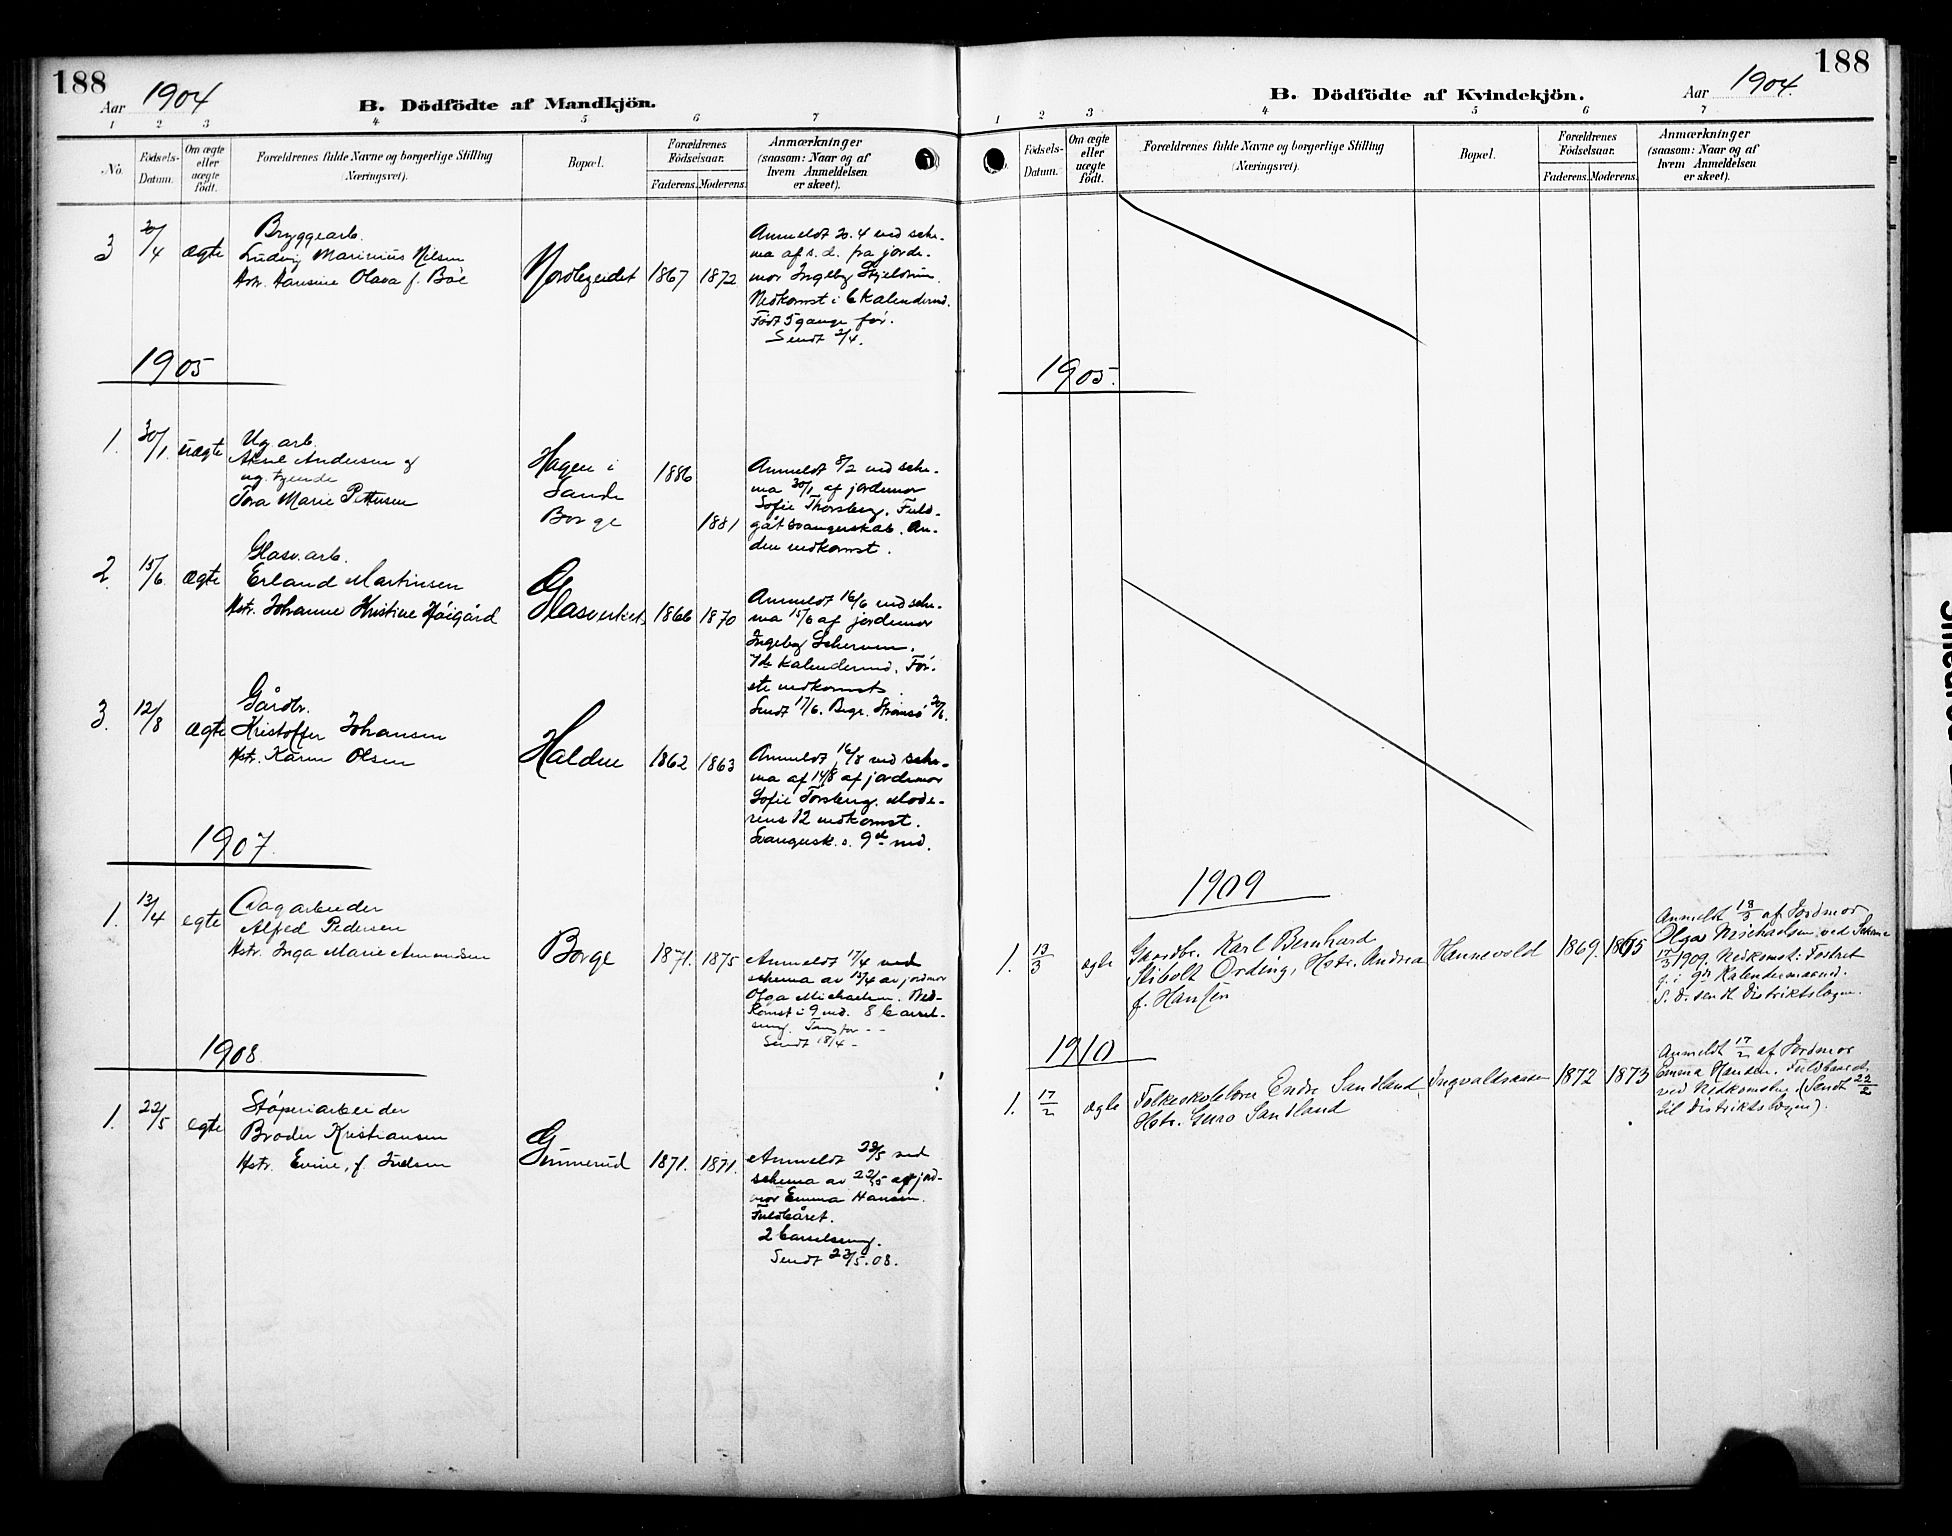 188
Aar 1904
B. Dödfödte af Mandkjön.
1 2 3 4 5 6 7
No.
Födsels-
Datum.
Om ægte
eller
uægte
født.
Forældrenes fulde Navne og borgerlige Stilling
(Næringsvei).
Bopæl.
Forældrenes
Födselsaar.
Faderens. Moderens.
Anmærkninger
(saasom: Naar og af
hvem Anmeldelsen
er skeet).
3 20/4 ægte
Bryggearb.
Ludvig Marinius Nilsen
Hstr. Hansine Olava f. Böe
1867 1872
Anmeldt 20.4 ved sche-
ma af s. d. fra jorde-
mor Ingebg
Nedkomst i 6 kalendermd.
Födt 5 gange før.
Sendt
1905
1. 30/1 uægte
Ug. arb.
Andersen og
ug. tjende
Tora Marie Pettersen
Hagen i
Sande
Borge
1886
1881
Anmeldt 8/2 ved sche-
ma 30/1 af jordemor
Sofie Thorsberg. Fuld-
gåt svangerskab. An-
den nedkomst.
2 15/6 ægte
Glasv.arb.
Erland Martinsen
Hstr. Johanne Kristine Höigård
Glasverket
1866 1870
Anmeldt 16/6 ved sche-
ma 15/6 af jordemor
Ingebg
7de kalendermd. För-
ste nedkomst.
Sendt 17/6. Begr. Strömsö 20/6.
3. 12/8 ægte
Gårdbr.
Kristoffer Johansen
Hstr. Karen Olsen
Halden
1862 1863
Anmeldt 16/8 ved sche-
ma af 14/8 af jordemor
Sofie Torsberg. Mode-
rens 12 nedkomst.
Svangersk. s. 9de md.
1907
1. 13/4 egte
Dagarbeider
Alfred Pedersen
Hstr. Inga Marie Amundsen
Borge
1871. 1875
Anmeldt 17/4 ved
schema av 15/4 av jordmor
Olga Michaelsen. Ned-
komst i 9 md. 8 barsel-
seng.
Sendt 18/4 -
1908.
1. 22/5 egte
Stöperiarbeider
Broder Kristiansen
Hstr. Evine, f.
Gunnerud
1871. 1871.
Anmeldt 23/5 ved
schema av 22/5 af jord-
mor Emma Hansen.
Fuldbåret.
2 barselseng.
Sendt 23/5.08.
188
Aar 1904.
B. Dödfödte af Kvindekjön.
1 2 3 4 5 6 7
Födsels-
Datum.
Om ægte
eller
uægte
født.
Forældrenes fulde Navne og borgerlige Stilling
(Næringsvei).
Bopæl.
Forældrenes
Födselsaar.
Faderens. Moderens.
Anmærkninger
(saasom: Naar og af
hvem Anmeldelsen
er skeet).
1905.
1909
1. 13/3 ægte
Gaardbr. Karl Bernhard
Stibolt Ording, Hstr. Andrea
f. Hansen
Hannevold
1869. 1865
Anmeldt 18/3 af Jordmor
Olga Michaelsen ved Schema
17/3 1909. Nedkomst: Fostret
f. i 9de Kalendermaaned.
S. D. sendt Distriktslægen.
1910
1. 17/2 ægte
Folkeskolelærer Endre Sandland,
Hstr. Guro Sandland
1872 1873
Anmeldt 17/2 af Jordmor
Emma Hansen. Fuldbaaret
ved Nedkomsten (Sendt 22/2
til Distriktslægen).